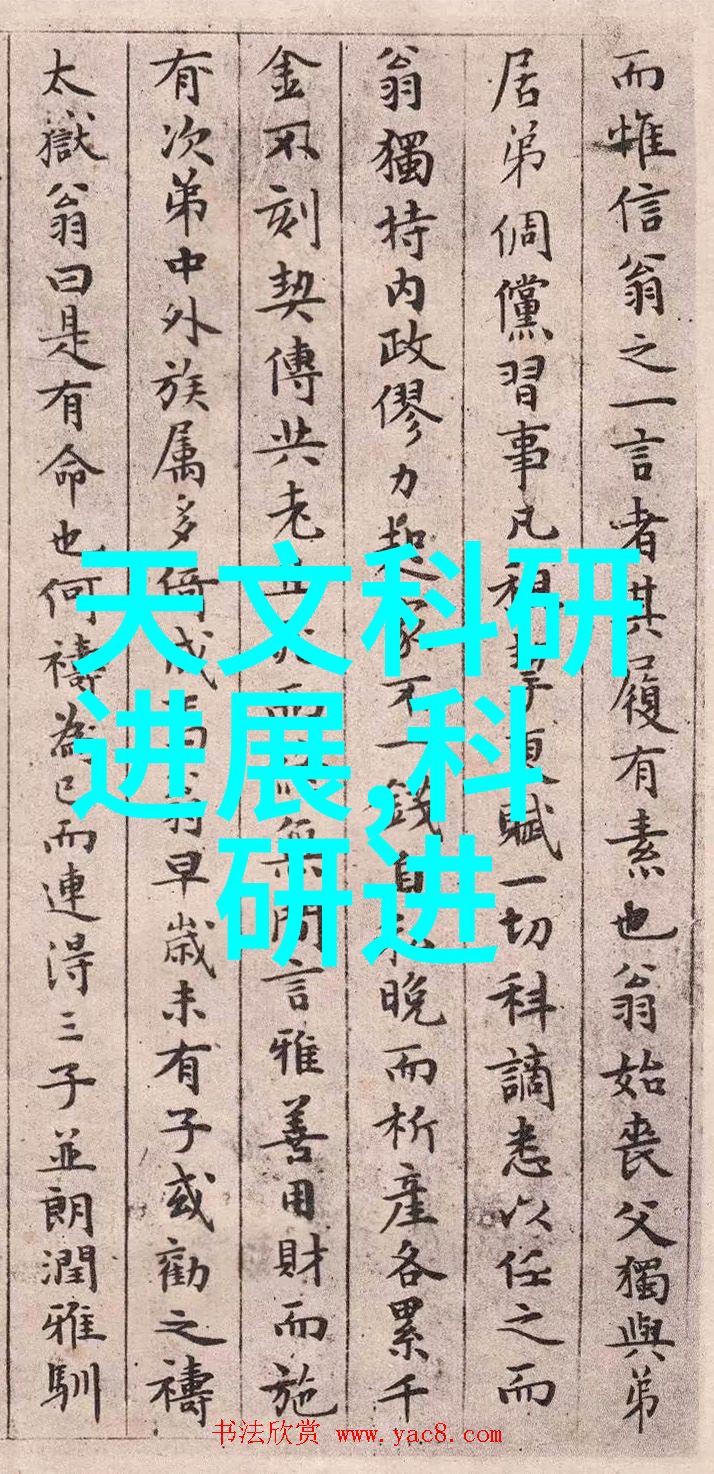 而惟信翁之一言者其履有素也翁始丧父獨與弟
居弟倜儻習事凡租更賦一切科謫悉以任之而
翁獨持内政僇力起家不一錢自私晚而析產各累千
金不刻契傳共老而無間言雅善用財而施
有次弟中外族属多倚成焉翁早歲未有子或勸之禱
太嶽翁曰是有命也何禱為已而連得三子並朗潤雅馴
天文科研
进展,科
研进
书法欣赏 www.yac8.com